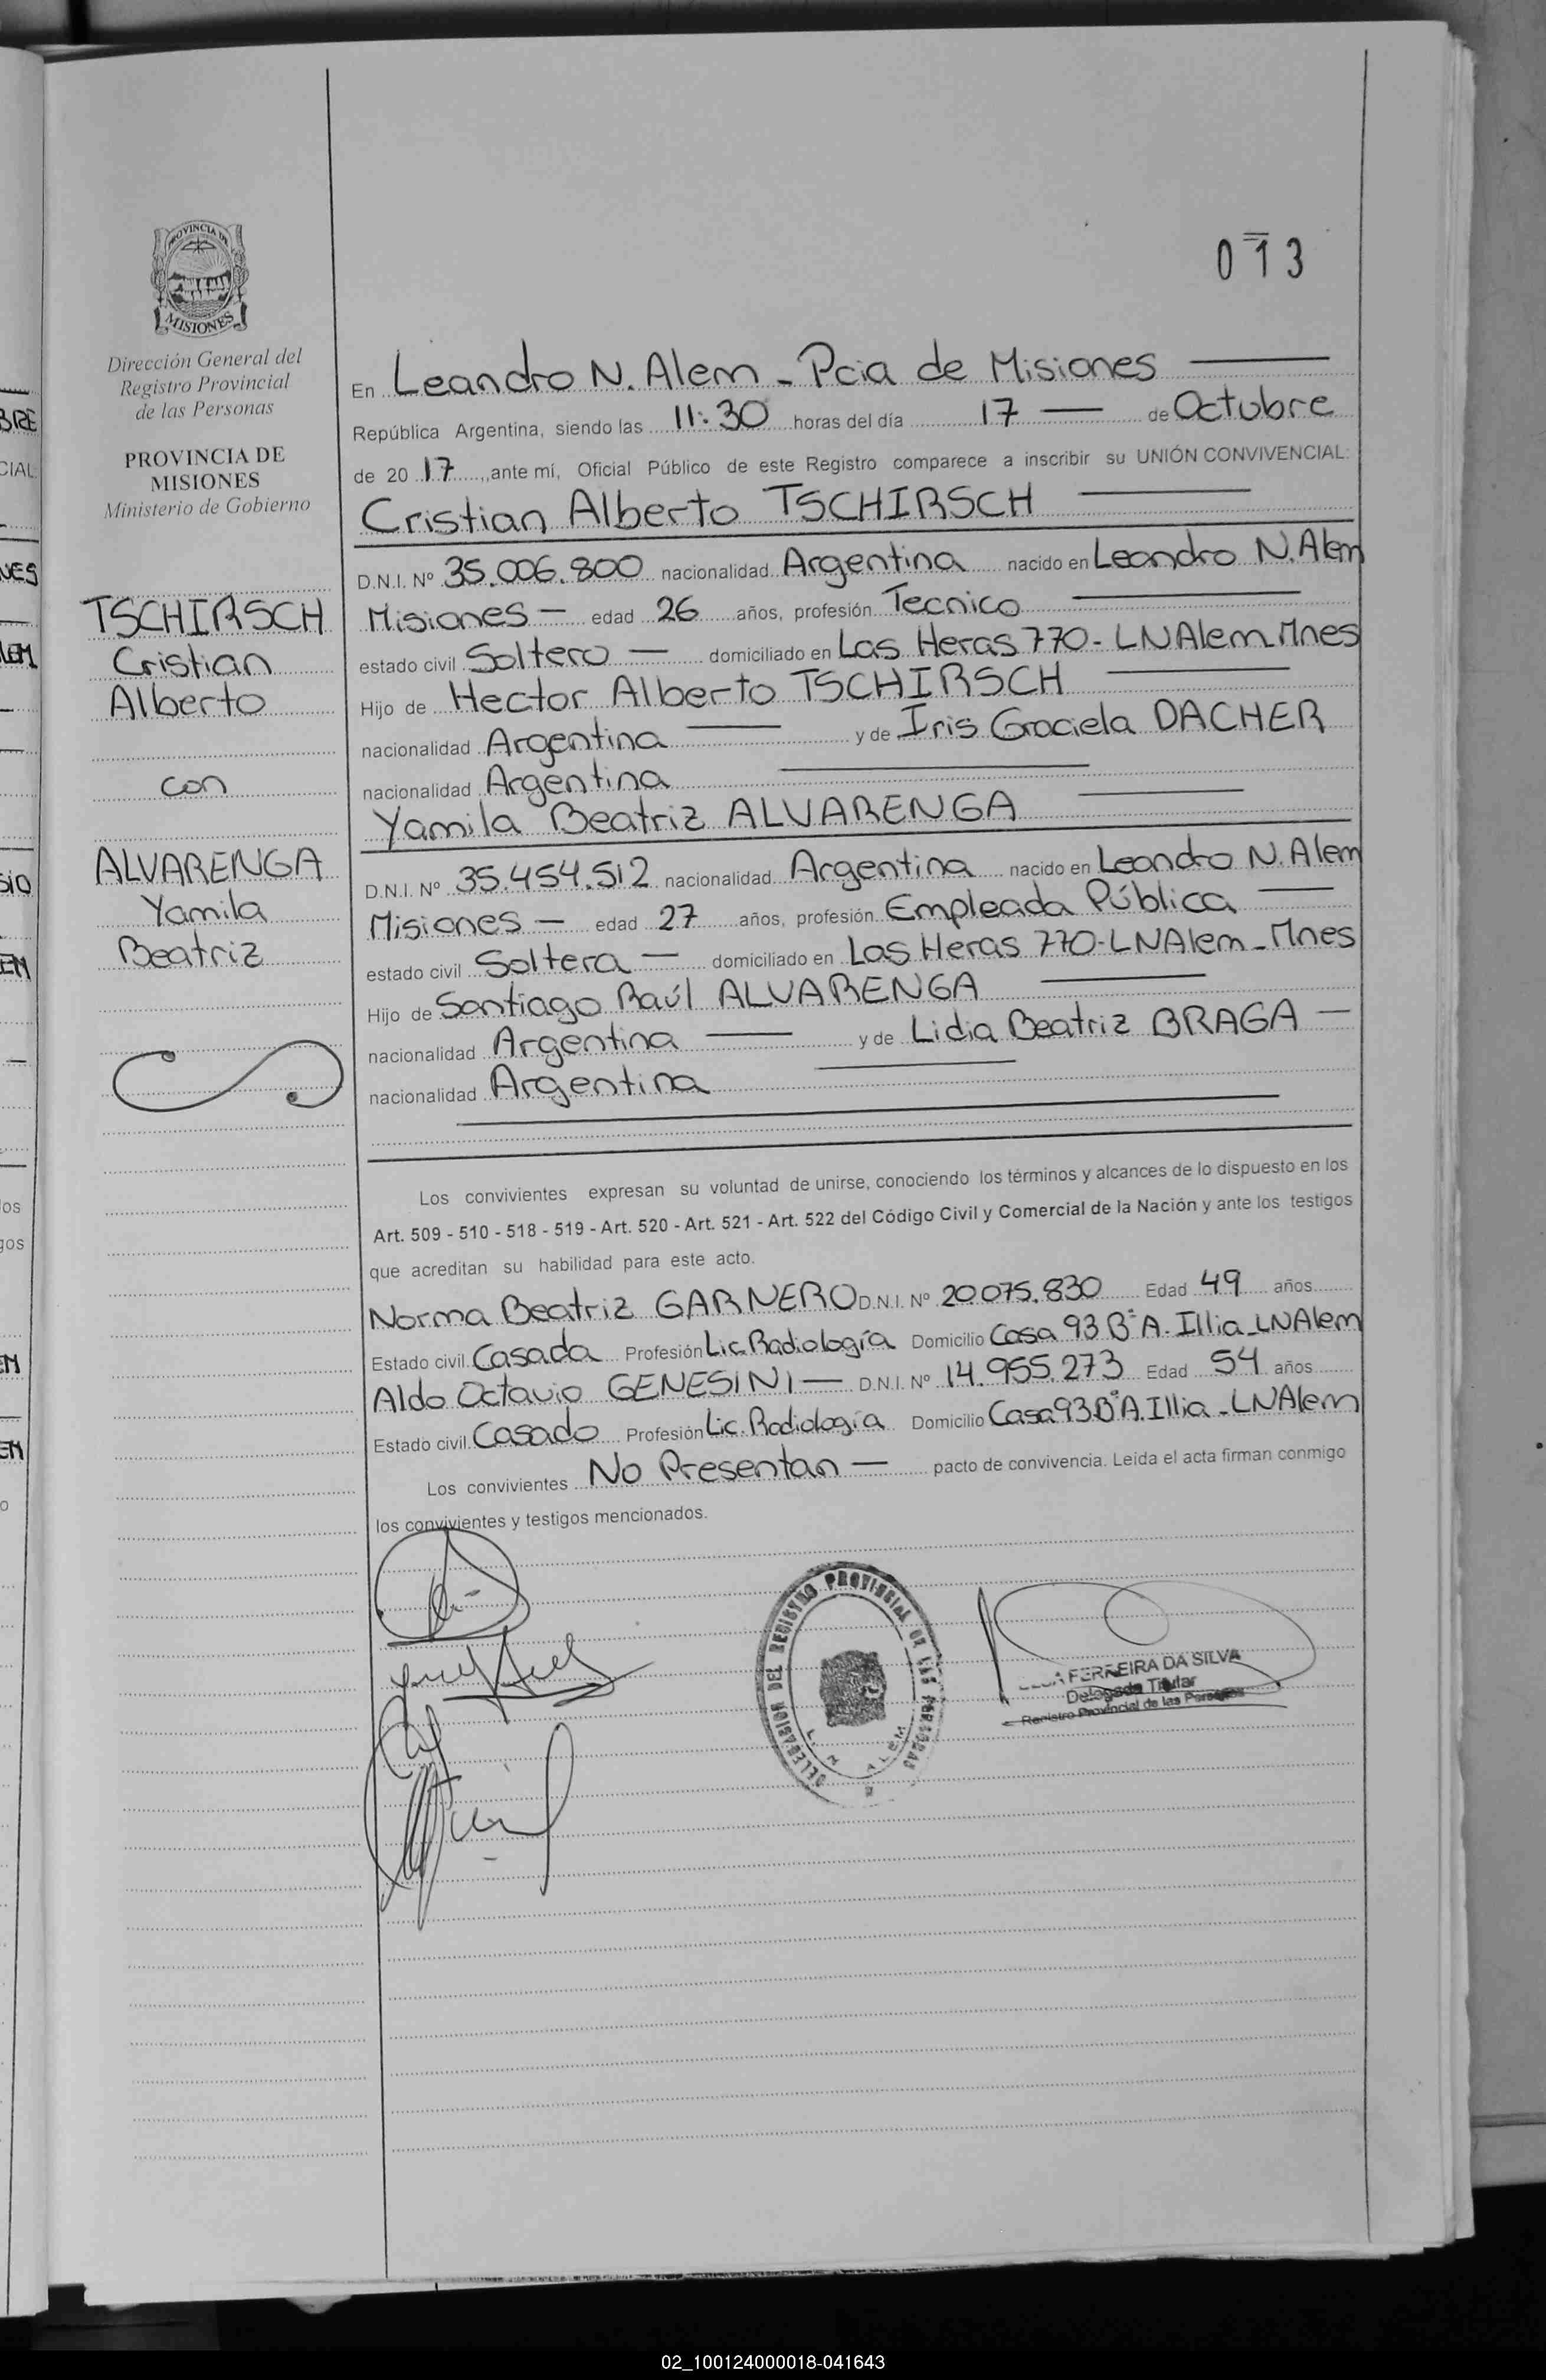 013
PROVINCIA DE
MISIONES
Dirección General del
Registro Provincial
de las Personas
PROVINCIA DE
MISIONES
Ministerio de Gobierno
TSCHIRSCH
Cristian
Alberto
con
ALVARENGA
Yamila
Beatriz
En Leandro N. Alem - Pcia de Misiones
República Argentina, siendo las 11:30 horas del día 17 — de Octubre
de 20 17, ante mí, Oficial Público de este Registro comparece a inscribir su UNIÓN CONVIVENCIAL:
Cristian Alberto TSCHIRSCH
D.N.I. Nº 35.006.800 nacionalidad Argentina nacido en Leandro N. Alem
Misiones — edad 26 años, profesión Tecnico
estado civil Soltero — domiciliado en Las Heras 770 - LNAlem Mnes
Hijo de Hector Alberto TSCHIRSCH
nacionalidad Argentina y de Iris Graciela DACHER
nacionalidad Argentina
Yamila Beatriz ALVARENGA
D.N.I. Nº 35.454.512 nacionalidad Argentina nacido en Leandro N. Alem
Misiones — edad 27 años, profesión Empleada Pública
estado civil Soltera — domiciliado en Las Heras 770-LNAlem - Mnes
Hijo de Santiago Raúl ALVARENGA
nacionalidad Argentina y de Lidia Beatriz BRAGA —
nacionalidad Argentina
Los convivientes expresan su voluntad de unirse, conociendo los términos y alcances de lo dispuesto en los
Art. 509 - 510 - 518 - 519 - Art. 520 - Art. 521 - Art. 522 del Código Civil y Comercial de la Nación y ante los testigos
que acreditan su habilidad para este acto.
Norma Beatriz GARNERO D.N.I. Nº 20.075.830 Edad 49 años
Estado civil Casada Profesión Lic. Radiología Domicilio Casa 93 Bº A. Illia - LNAlem
Aldo Octavio GENESINI — D.N.I. Nº 14.955.273 Edad 54 años
Estado civil Casado Profesión Lic. Radiología Domicilio Casa 93 Bº A. Illia - LNAlem
Los convivientes No Presentan — pacto de convivencia. Leída el acta firman conmigo
los convivientes y testigos mencionados.
DELEGACION DEL REGISTRO PROVINCIAL DE LAS PERSONAS
L. N. ALEM
FERREIRA DA SILVA
Delegada Titular
Registro Provincial de las Personas
02_100124000018-041643